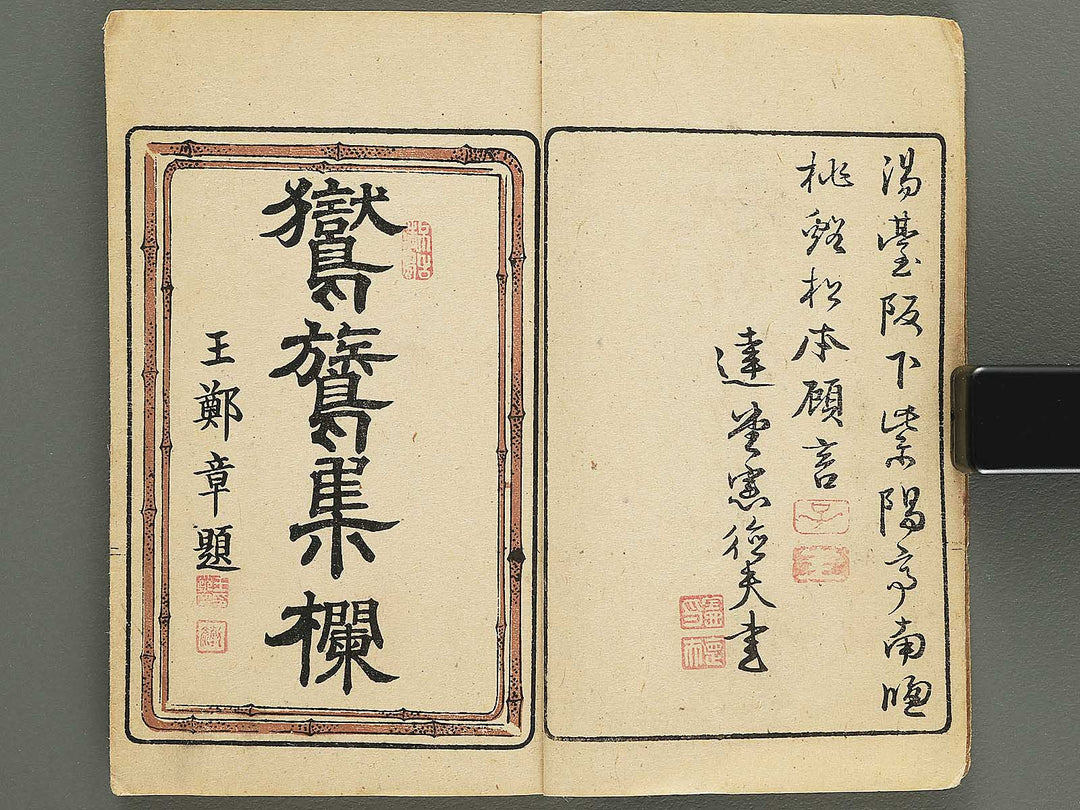 湯臺阪下紫陽亭南牕
桃谿松本顧言
達堂憲夫書
鸑鷟集欄
王鄭章題